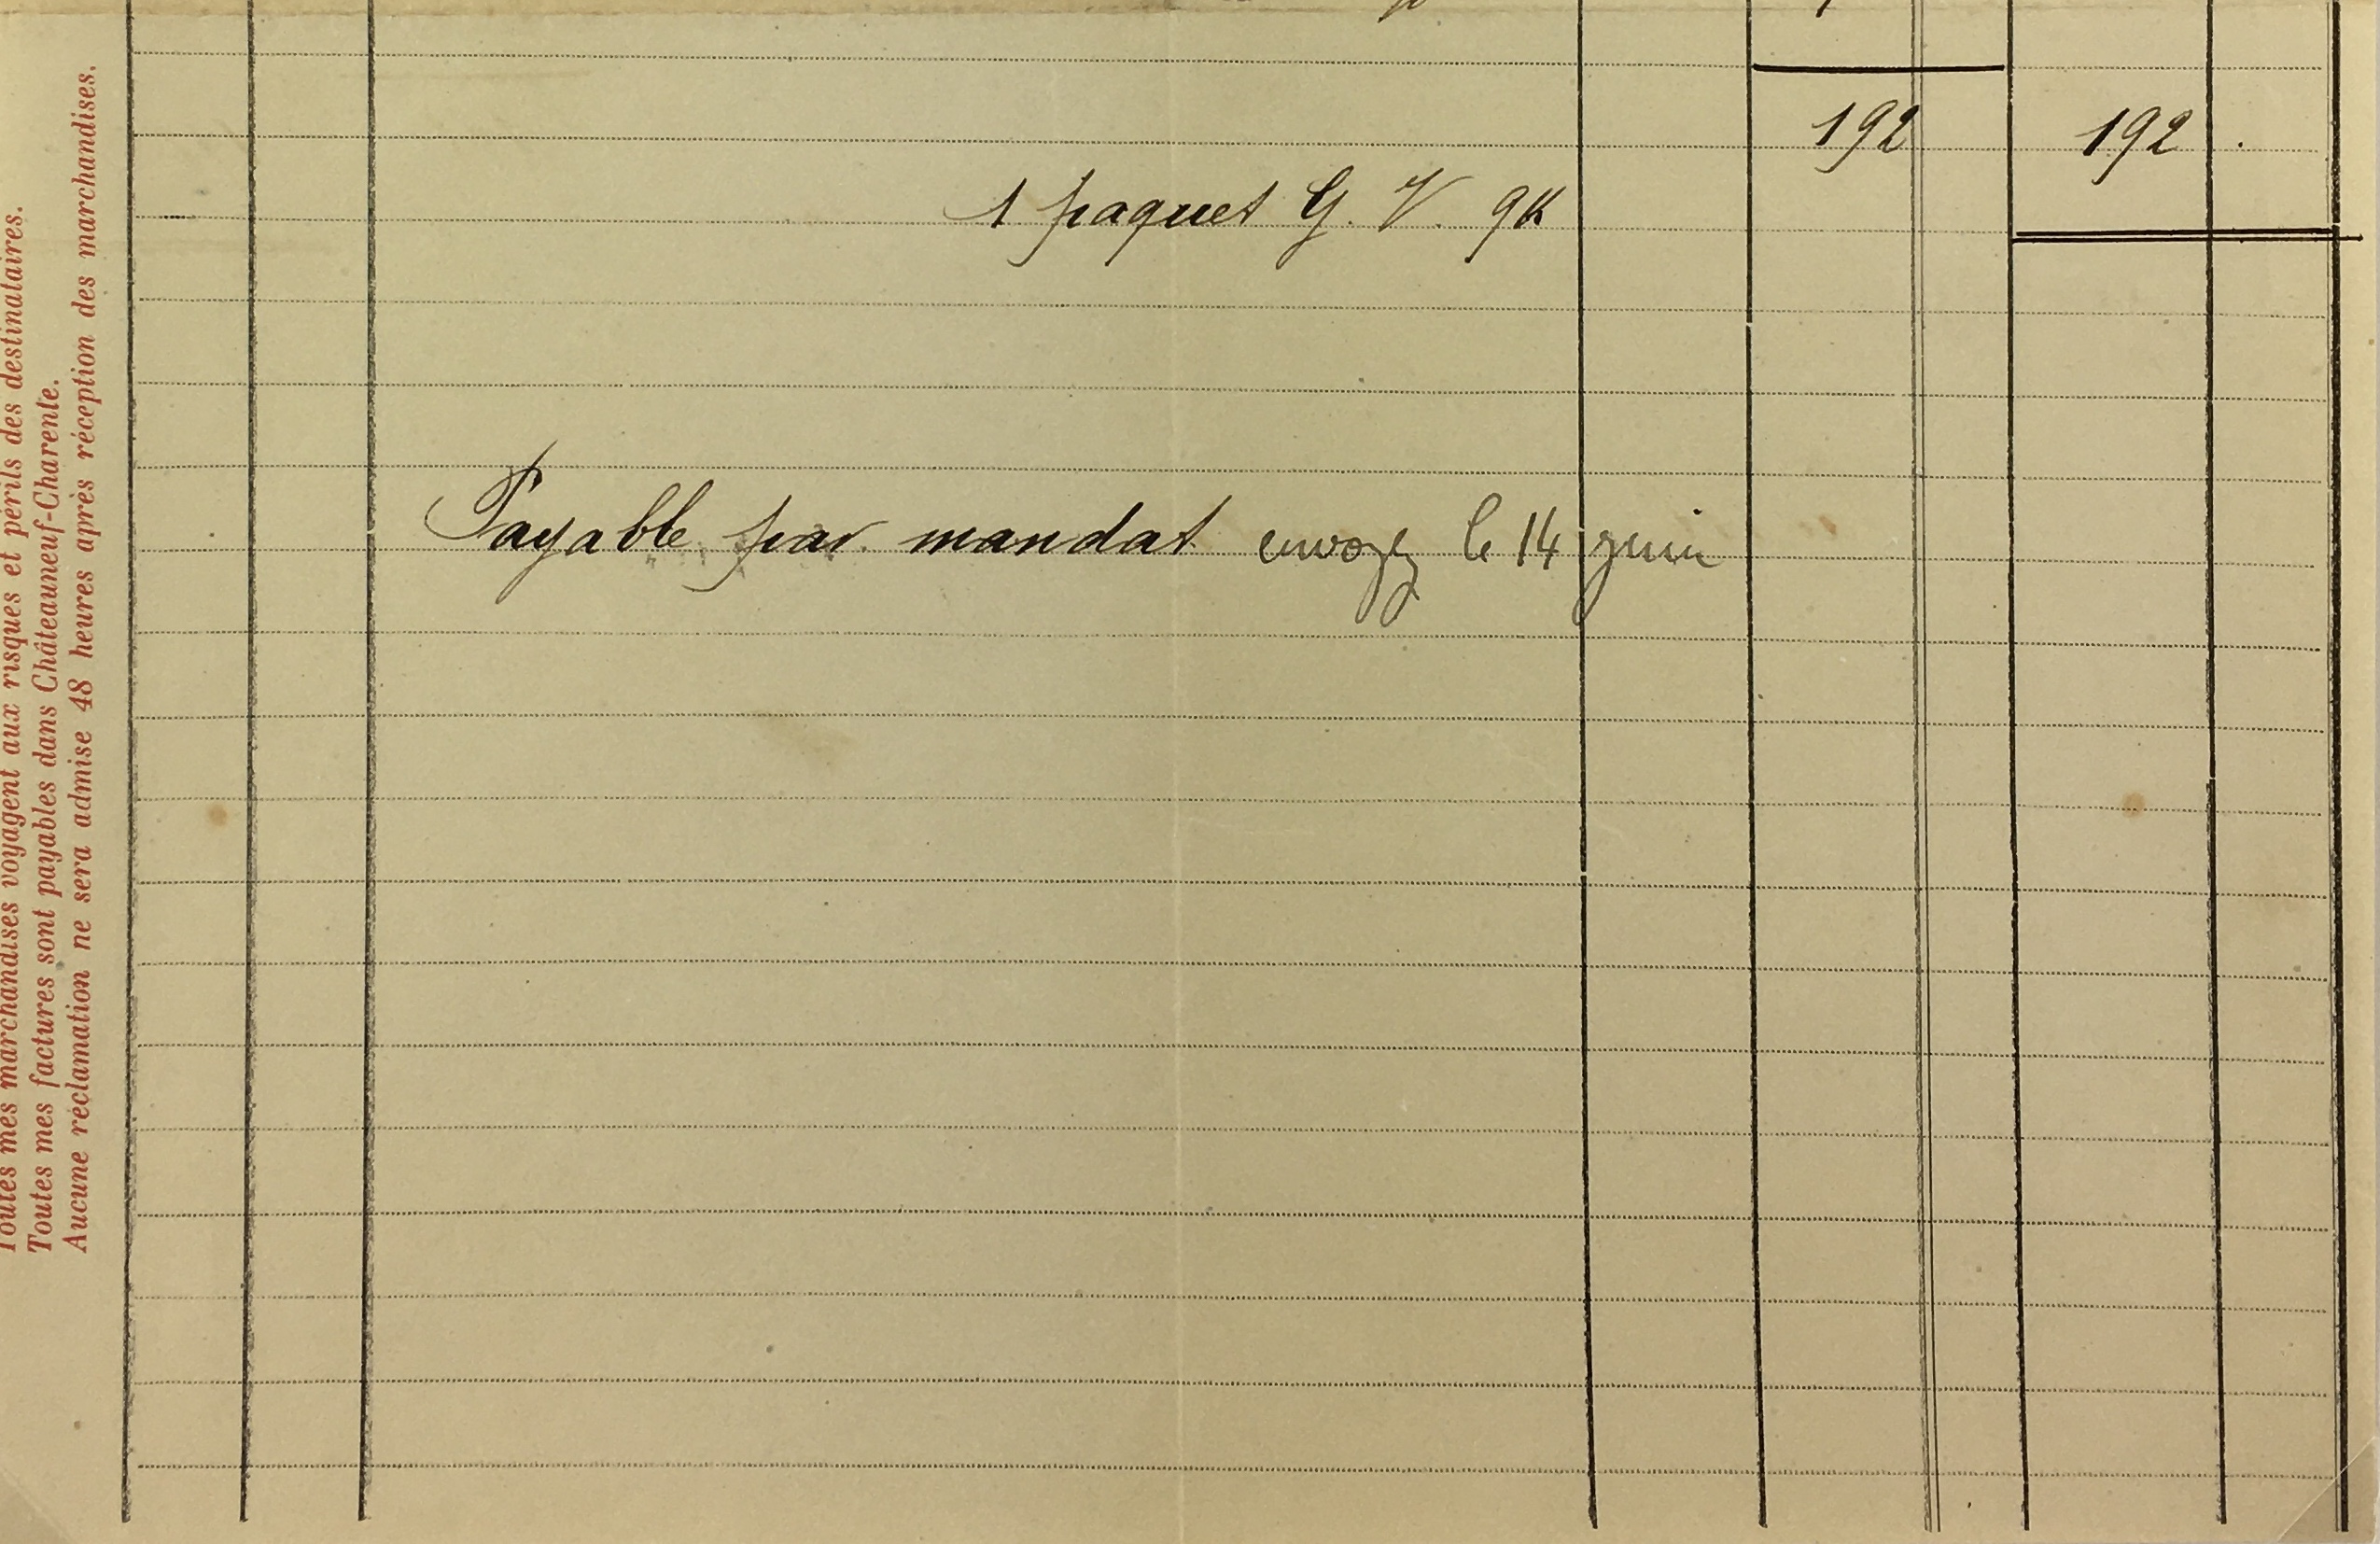 Toutes mes marchandises voyagent aux risques et périls des destinataires.
Toutes mes factures sont payables dans Châteauneuf-Charente.
Aucune réclamation ne sera admise 48 heures après réception des marchandises.
192 192 .
1 paquet G. V. 9K
Payable par mandat envoyez le 14 juin